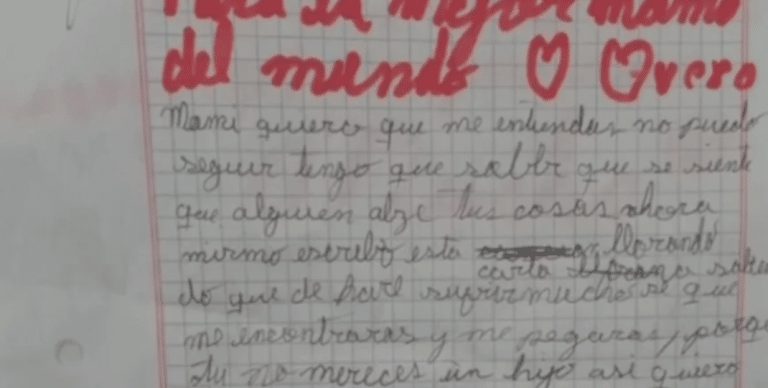 Para la mejor mama
del mundo ♡ ♡ vero
Mami quiero que me entiendas no puedo
seguir tengo que saber que se siente
que alguien alze tus cosas ahora
mismo escribo esta llorando
carta sabi
do que de hare sufrir mucho se que
me encontraras y me pegaras, porque
tu no mereces un hijo asi quiero